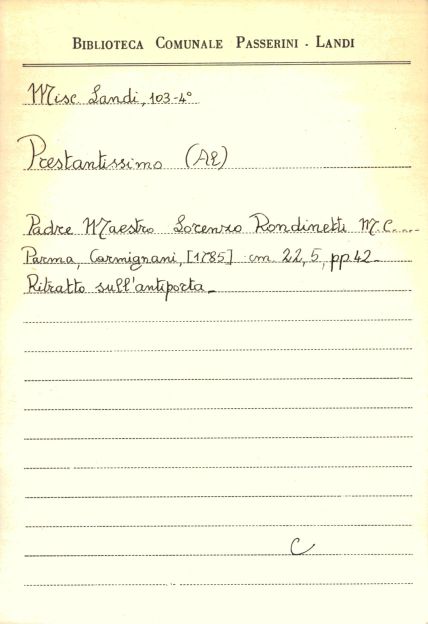 BIBLIOTECA COMUNALE PASSERINI - LANDI
Misc. Landi, 103-4°
Prestantissimo (Al)
Padre Maestro Lorenzo Rondinetti M.C....
Parma, Carmignani, [1785] cm. 22,5, pp. 42-
Ritratto sull'antiporta-
C